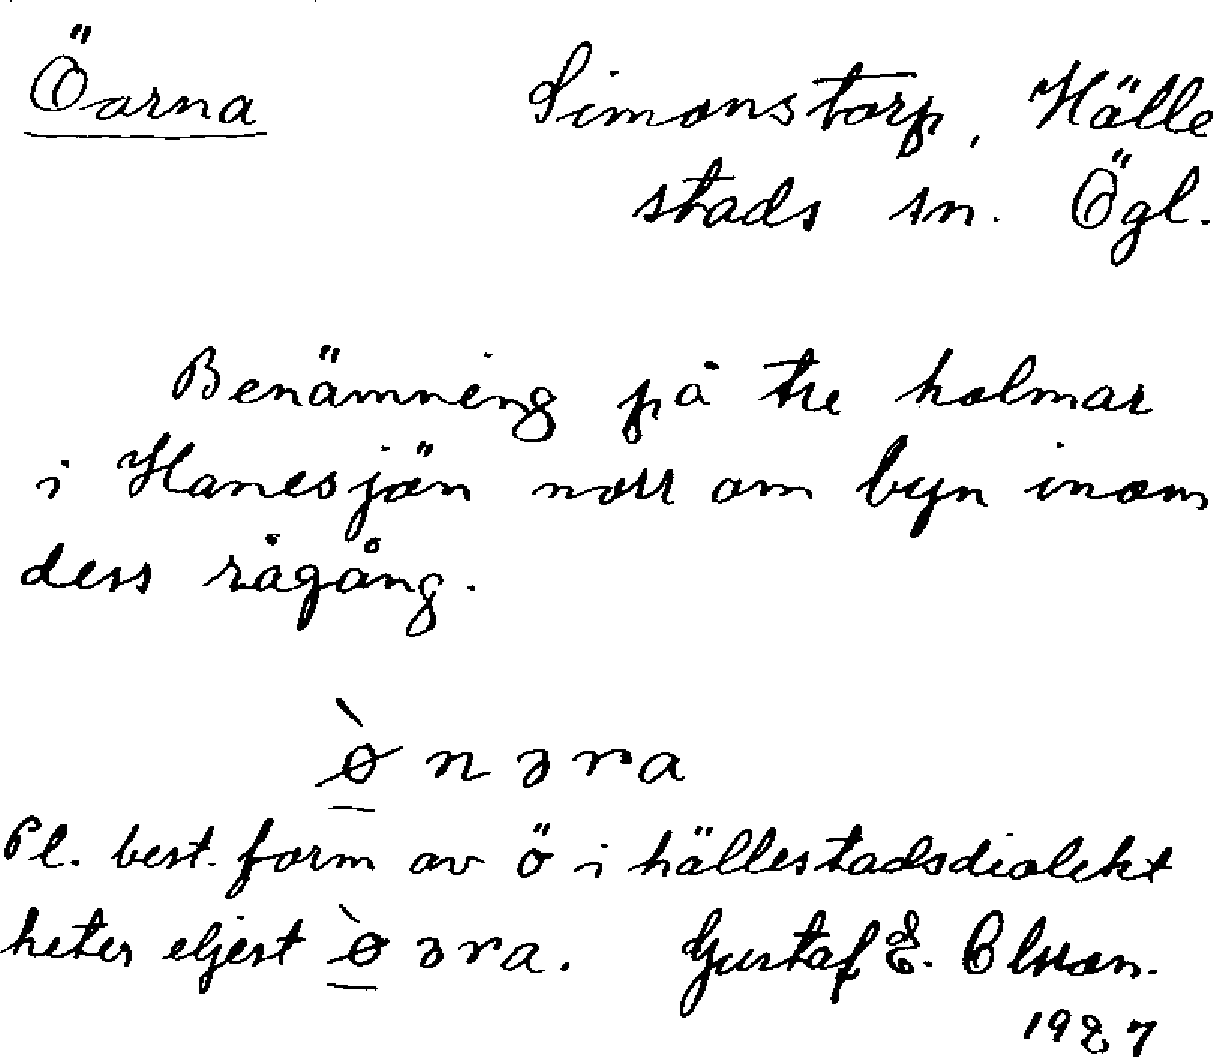 Öarna
Simonstorp, Hälle
stads sn. Ögl.
Benämning på tre holmar
i Hanesjön norr om byn inom
dess rågång.
ø̠̀nəra
Pl. best. form av ö i hällestadsdialekt
heter eljest ø̠̀əra. Gustaf E. Olsson.
1927